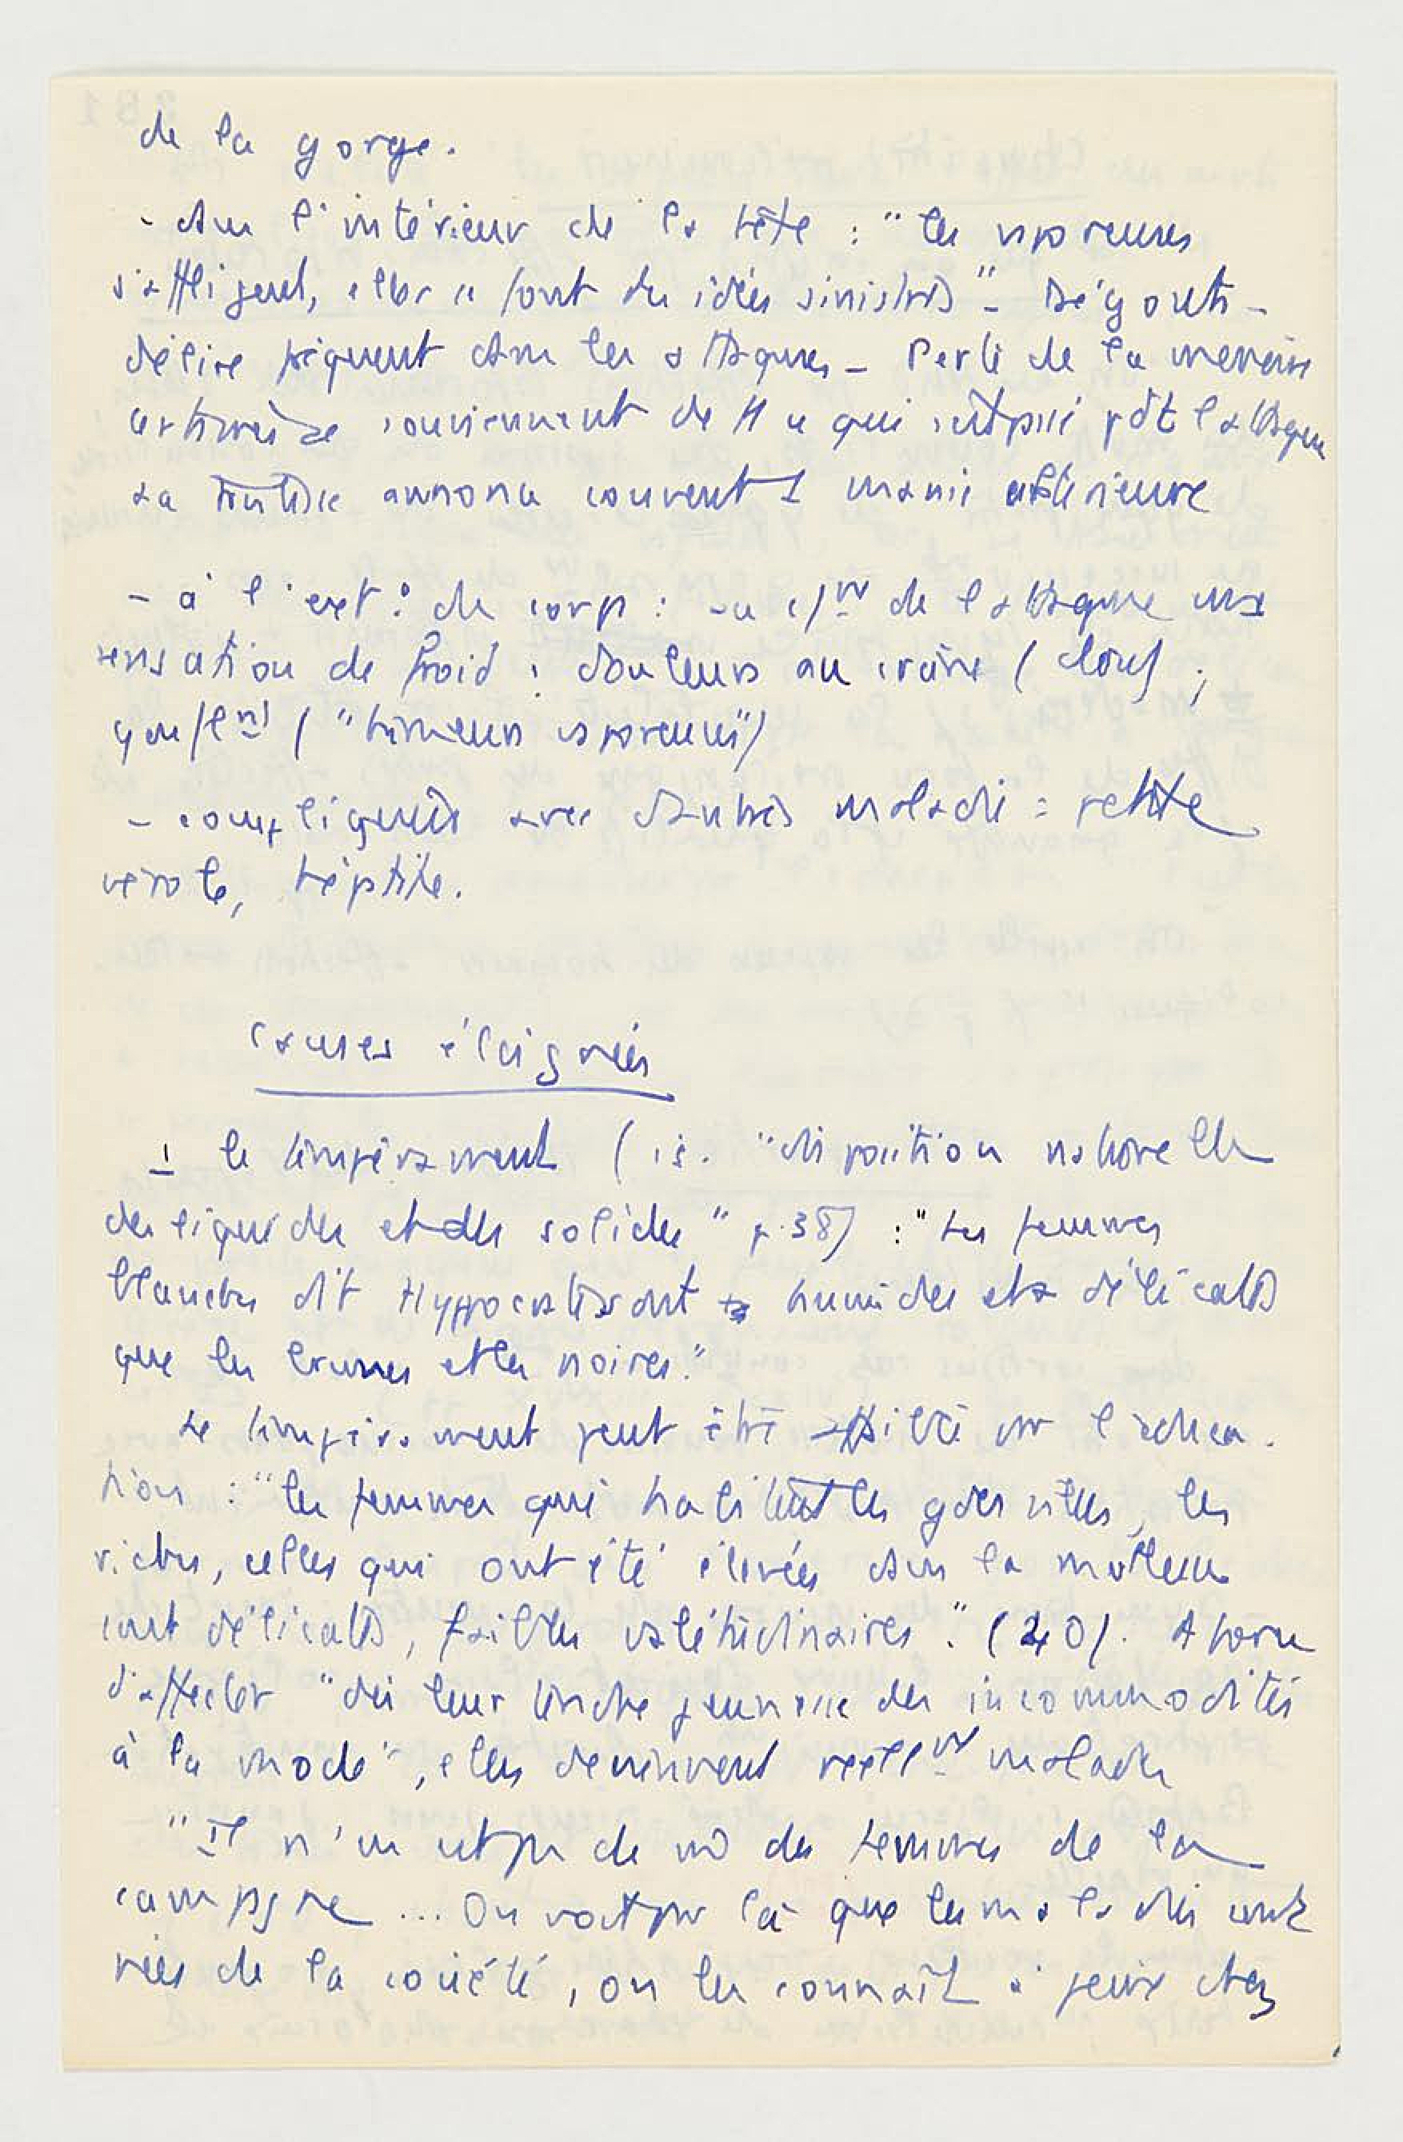 de la gorge.
- dans l'intérieur de la tête : "les vaporeuses
s'affligent, elles se font des idées sinistres" - Dégouts -
délire fréquent dans les attaques - Perte de la mémoire
certaines se souviennent de tt ce qui s'est passé pdt l'attaque
La tristesse annonce souvent 1 manie ultérieure
- à l'ext. du corps : au ct de l'attaque une
sensation de froid ; douleurs au crâne (clou) ;
gonflemt ("tumeurs vaporeuses")
- compliquées avec d'autres maladies : petite
vérole,
Causes éloignées
1 le tempérament (i.e. "disposition naturelle
des liquides et des solides" p. 38) : "Les femmes
blanches dit Hyppocrate sont + humides et + délicates
que les brunes et les noires."
Le tempérament peut être affaibli par l'éduca-
tion : "les femmes qui habitent les gdes villes, les
riches, celles qui ont été élevées dans la mollesse
sont délicates, faibles valétudinaires". (40). A force
d'affecter "dès leur tendre jeunesse des incommodités
à la mode", elles deviennent réellt malades
"Il n'en est pas de m̂ des femmes de la
campagne ... On voit par là que les maladies sont
nées de la société, on les connaît à peine chez